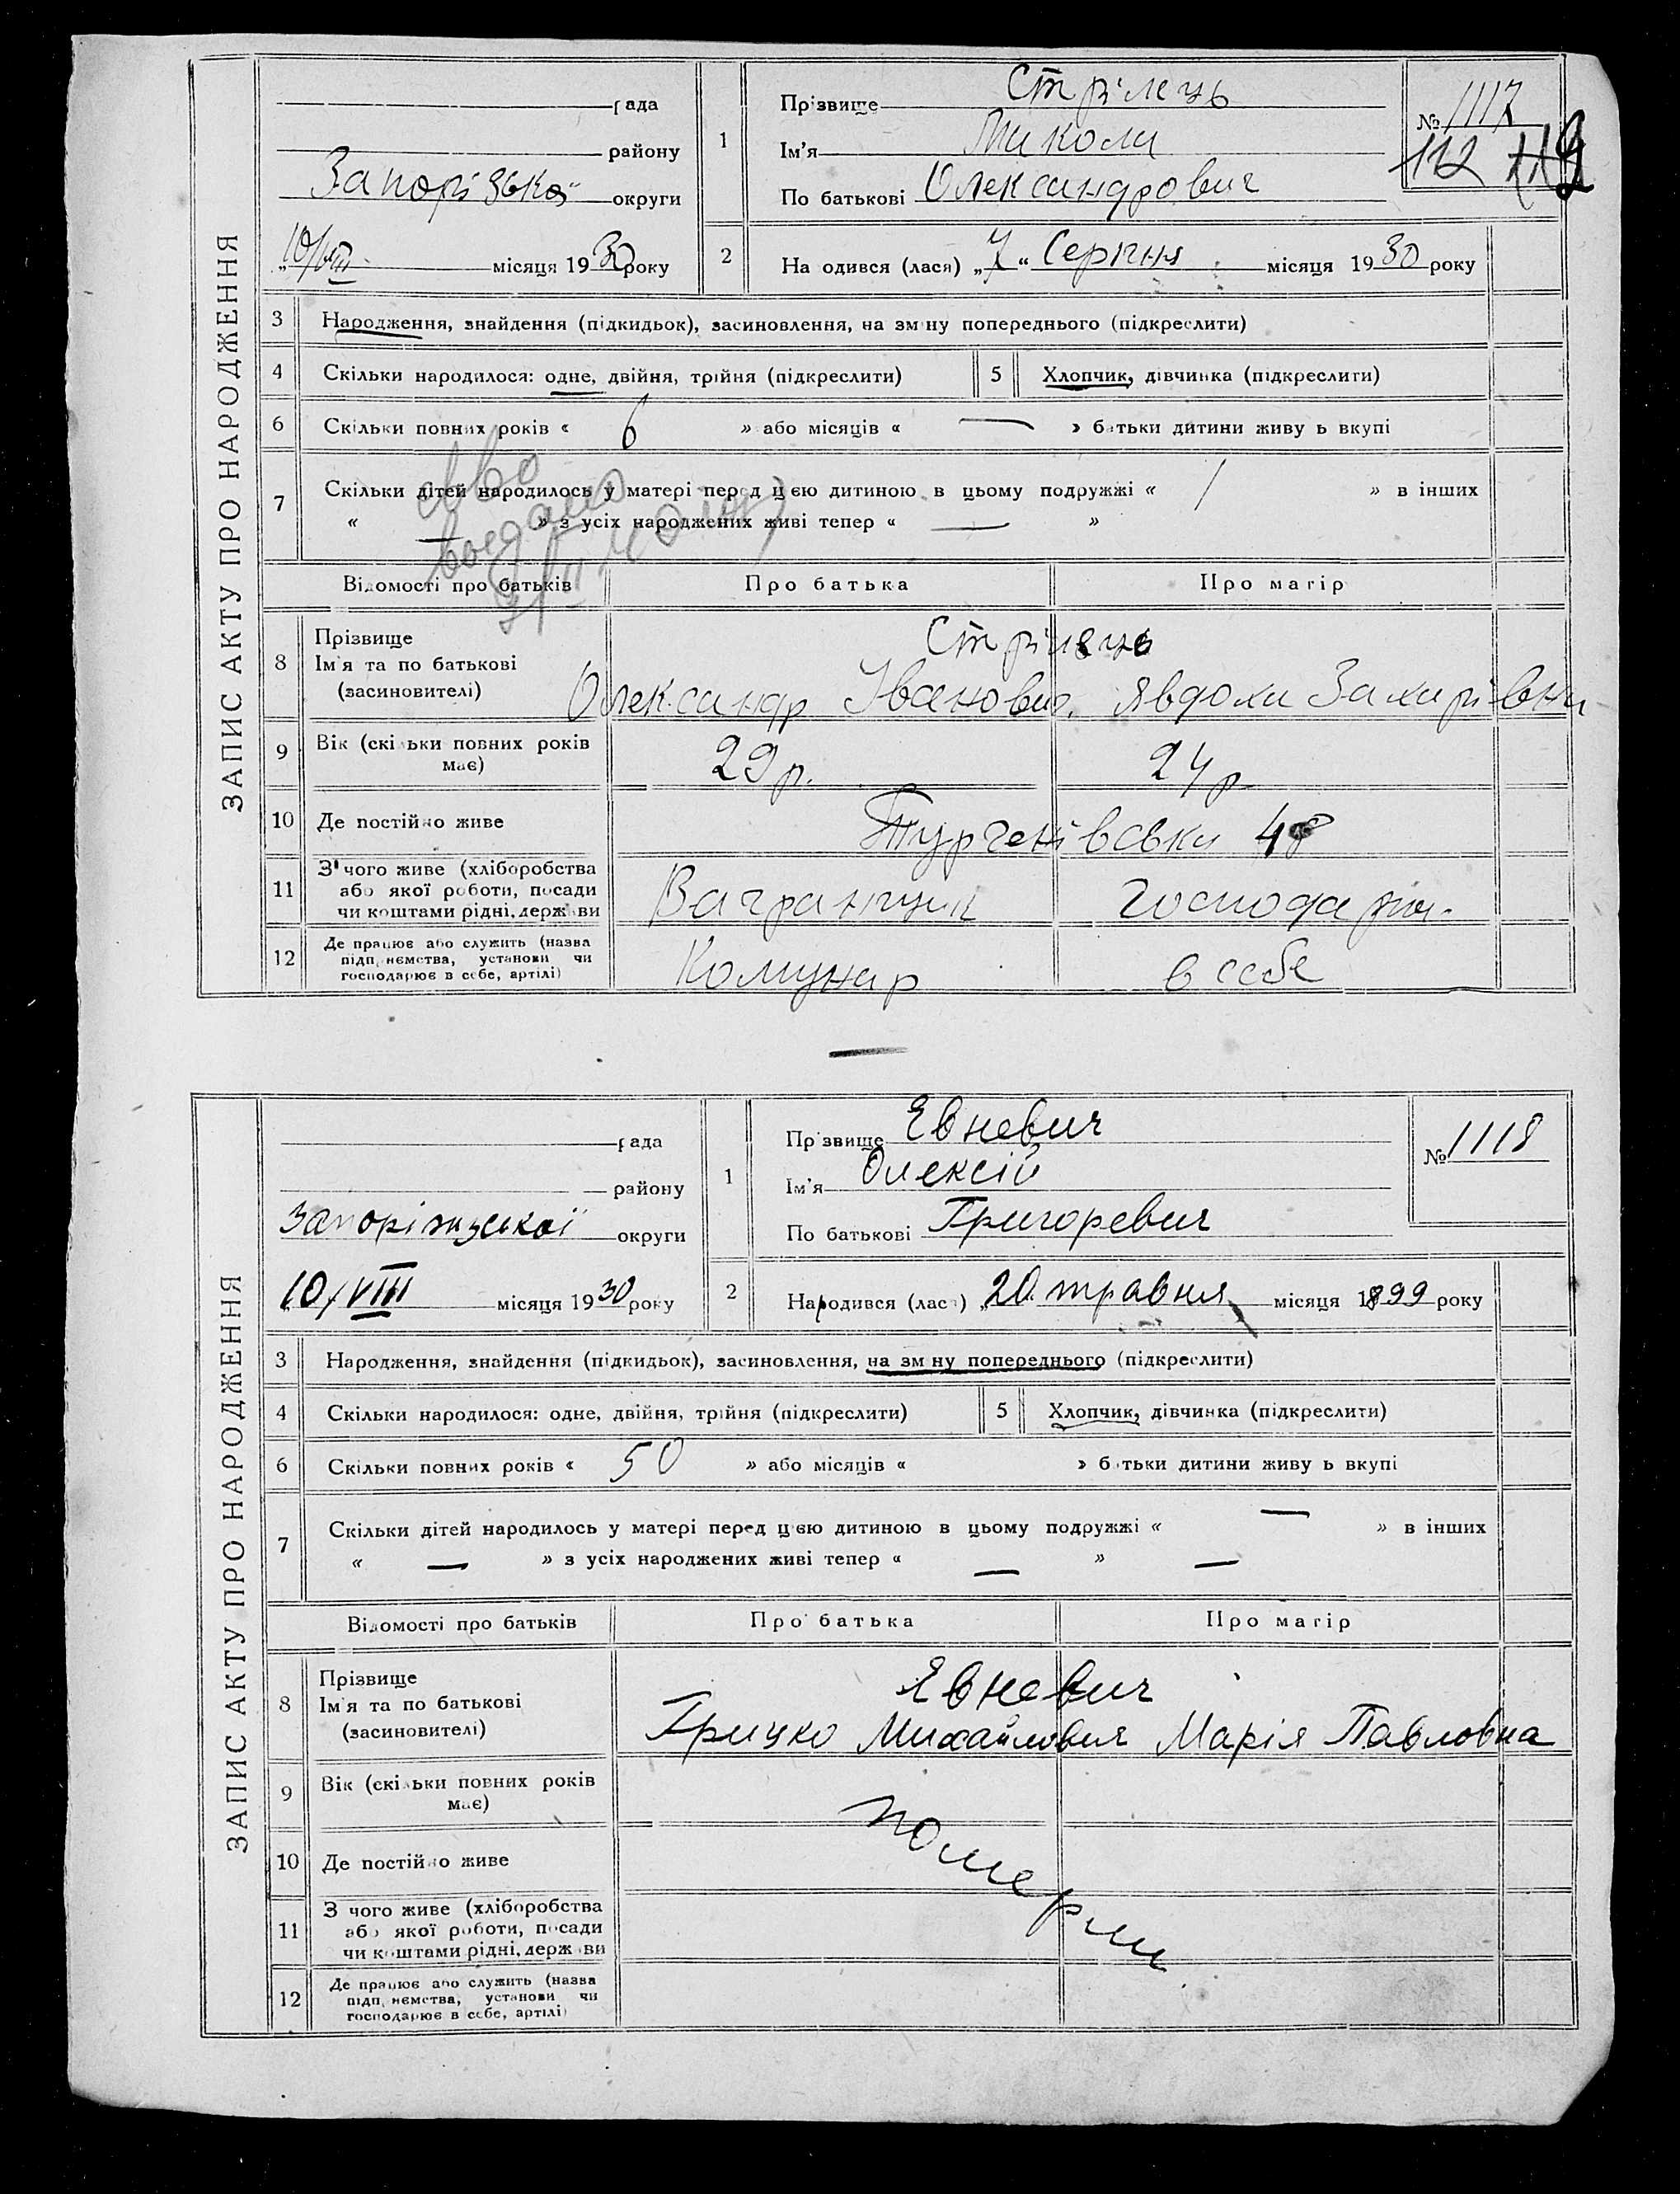 ЗАПИС АКТУ ПРО НАРОДЖЕННЯ
рада
району
Запорізької округи
10/VIII місяця 1930 року
1
Прізвище Стрілець
Ім'я Микола
По батькові Олександрович
№ 1117
112 119
2
Народився (лася) „7“ Серпня місяця 1930 року
3 Народження, знайдення (підкидьок), засиновлення, на зміну попереднього (підкреслити)
4 Скільки народилося: одне, двійня, трійня (підкреслити)
5 Хлопчик, дівчинка (підкреслити)
6 Скільки повних років « 6 » або місяців « — » батьки дитини живуть вкупі
7 Скільки дітей народилось у матері перед цією дитиною в цьому подружжі « / » в інших
« — » з усіх народжених живі тепер « — »
Відомості про батьків Про батька Про матір
8 Прізвище
Ім'я та по батькові
(засиновителі)
Стрілець
Олександр Іванович. Явдоха Захарівна
9 Вік (скільки повних років
має)
29 р. 24 р.
10 Де постійно живе
Тургенівська 48
11 З чого живе (хліборобства
або якої роботи, посади
чи коштами рідні, держави
Вагранщик господарюч.
12 Де працює або служить (назва
підприємства, установи чи
господарює в себе, артілі)
Комунар в себе
ЗАПИС АКТУ ПРО НАРОДЖЕННЯ
рада
району
Запоріжзської округи
10/VIII місяця 1930 року
1
Прізвище Євневич
Ім'я Олексій
По батькові Григоревич
№ 1118
2
Народився (лася) „20 травня місяця 1899 року
3 Народження, знайдення (підкидьок), засиновлення, на зміну попереднього (підкреслити)
4 Скільки народилося: одне, двійня, трійня (підкреслити)
5 Хлопчик, дівчинка (підкреслити)
6 Скільки повних років « 50 » або місяців « » батьки дитини живуть вкупі
7 Скільки дітей народилось у матері перед цією дитиною в цьому подружжі « — » в інших
« — » з усіх народжених живі тепер « — » —
Відомості про батьків Про батька Про матір
8 Прізвище
Ім'я та по батькові
(засиновителі)
Євневич
Грицко Михайлович Марія Павловна
9 Вік (скільки повних років
має)
10 Де постійно живе
11 З чого живе (хліборобства
або якої роботи, посади
чи коштами рідні, держави
12 Де працює або служить (назва
підприємства, установи чи
господарює в себе, артілі)
померли